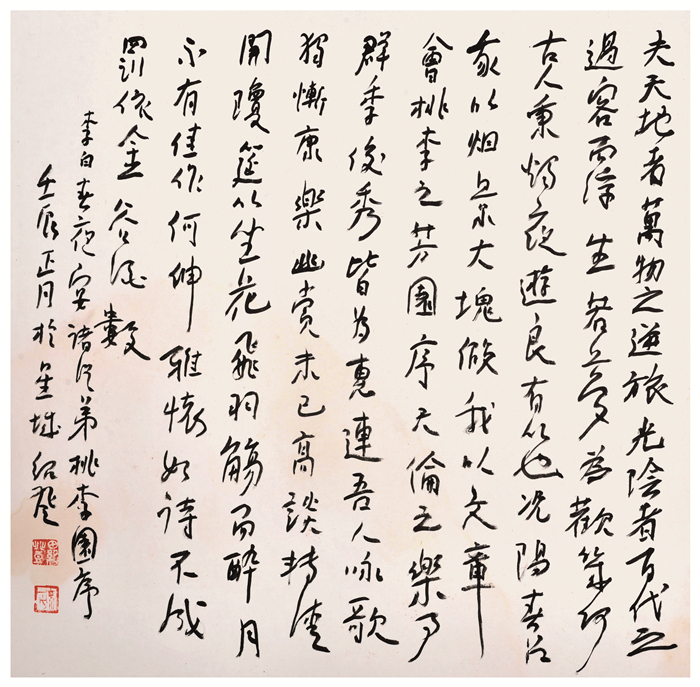 夫天地者萬物之逆旅光陰者百代之
過客而浮生若夢為歡幾何
古人秉燭夜遊良有以也況陽春召
我以烟景大塊假我以文章
會桃李之芳園序天倫之樂事
群季俊秀皆為惠連吾人詠歌
獨慚康樂幽賞未已高談轉清
開瓊筵以坐花飛羽觴而醉月
不有佳作何伸雅懷如詩不成
罰依金谷酒數
李白春夜宴諸從弟桃李園序
壬辰正月於星城紹